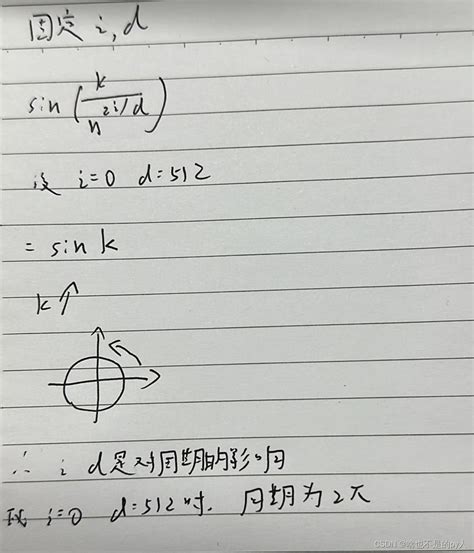 固定 i, d
sin (k / n^{2i/d})
设 i=0 d=512
= sin k
k↑
∴ i d是对周期的影响
i=0 d=512时. 周期为2π
CSDN @啥也不是的py人